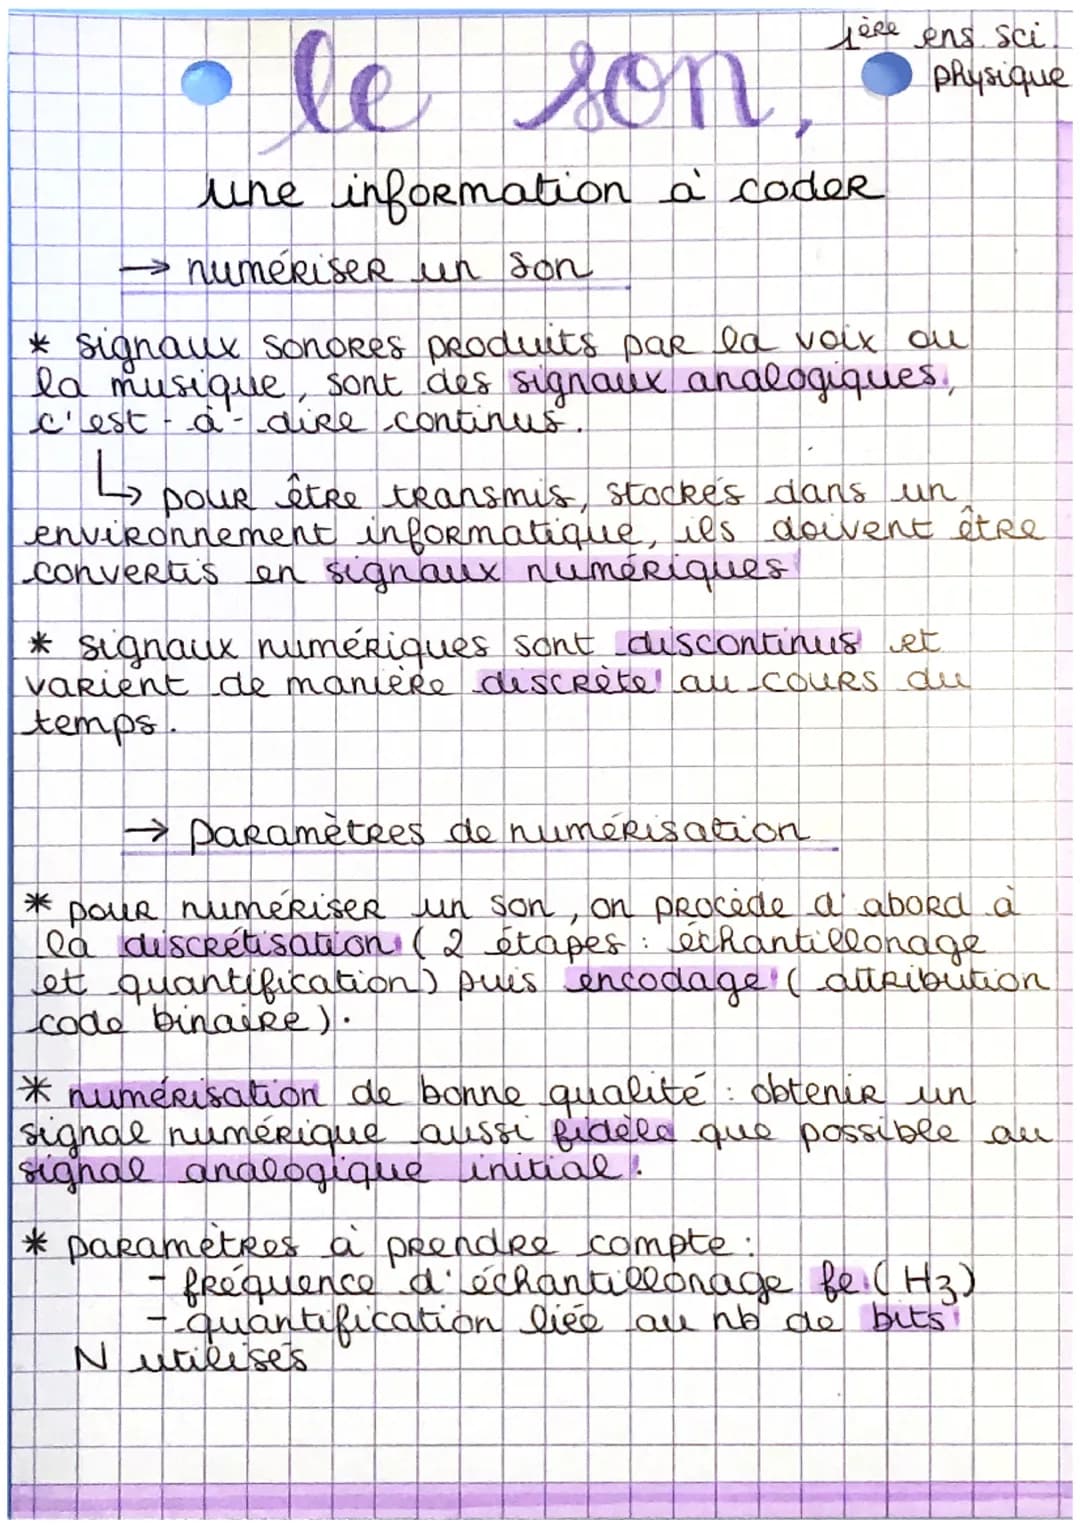 1ère ens. sci.
physique
le son,
une information à coder
→ numériser un son
* signaux sonores produits par la voix ou
la musique, sont des signaux analogiques,
c'est-à-dire continus.
↳ pour être transmis, stockés dans un
environnement informatique, ils doivent être
convertis en signaux numériques
* signaux numériques sont discontinus et
varient de manière discrète au cours du
temps.
→ paramètres de numérisation
* pour numériser un son, on procède d'abord à
la discrétisation (2 étapes : échantillonage
et quantification) puis encodage (attribution
code binaire).
* numérisation de bonne qualité : obtenir un
signal numérique aussi fidèle que possible au
signal analogique initial.
* paramètres à prendre compte :
- fréquence d'échantillonage fe (Hz)
- quantification liée au nb de bits
N utilisés